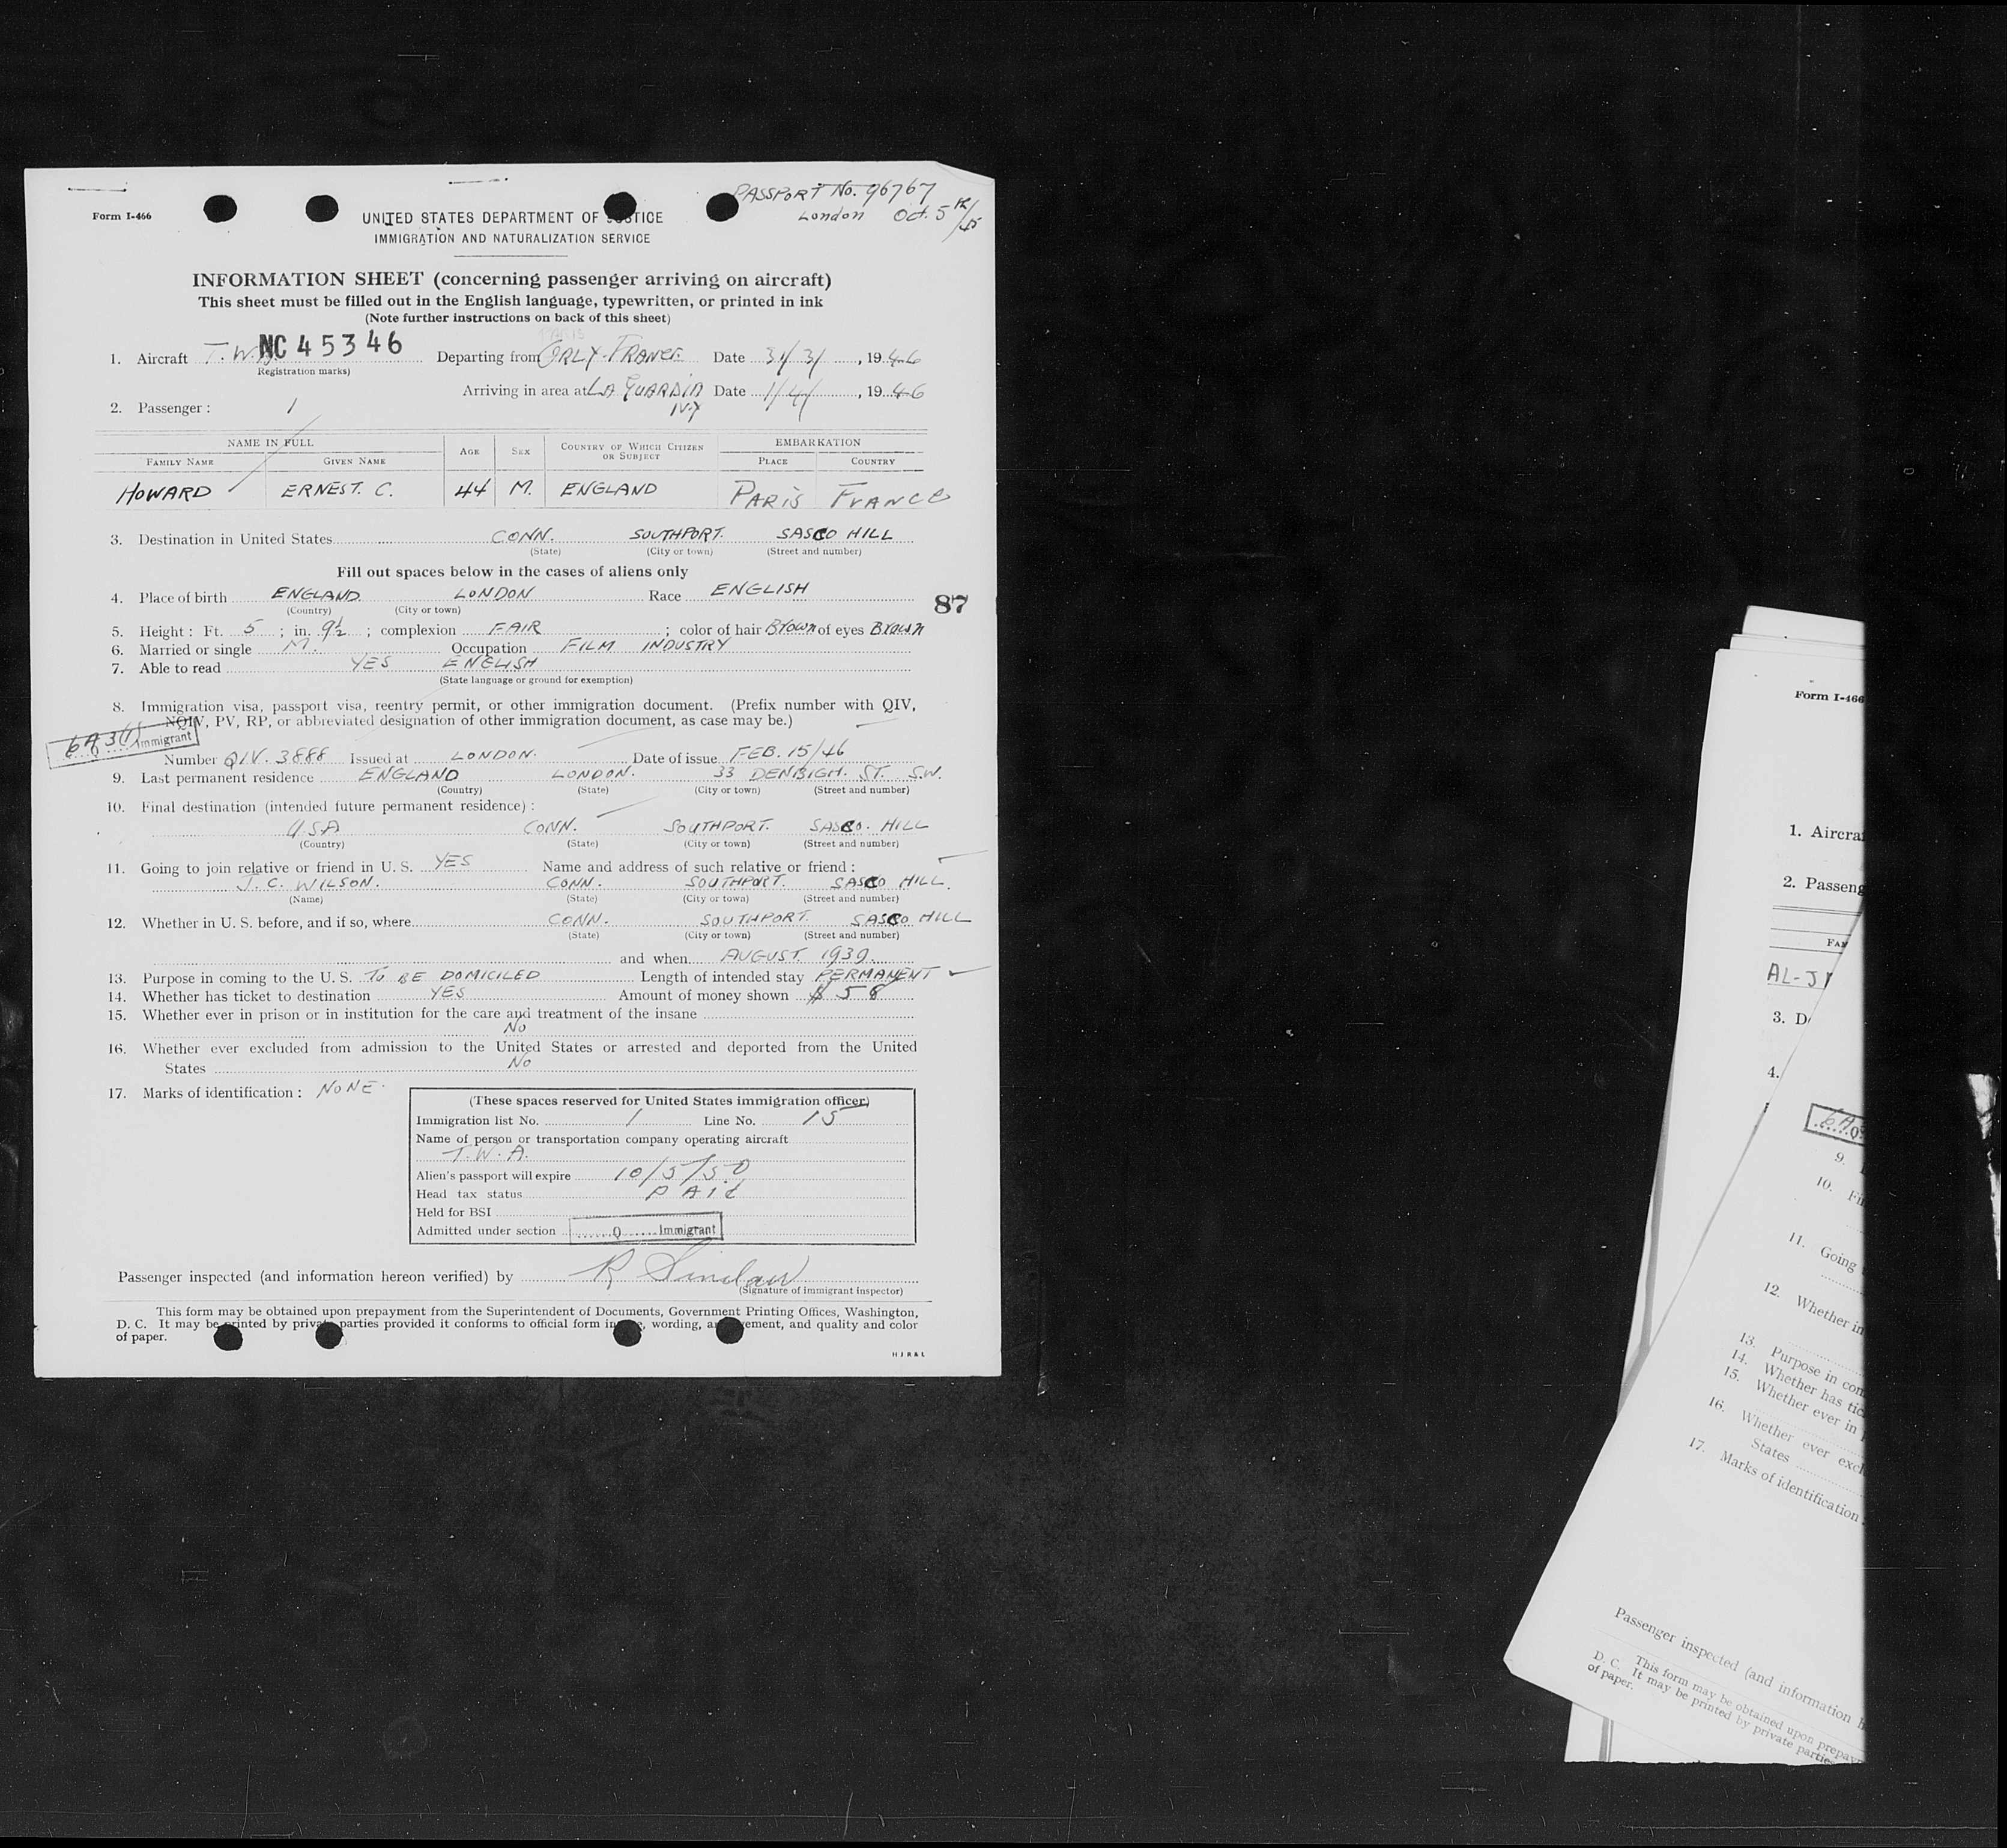 PASSPORT No. 96767
London Oct. 5th/45
Form I-466
UNITED STATES DEPARTMENT OF JUSTICE
IMMIGRATION AND NATURALIZATION SERVICE
INFORMATION SHEET (concerning passenger arriving on aircraft)
This sheet must be filled out in the English language, typewritten, or printed in ink
(Note further instructions on back of this sheet)
1. Aircraft T.W. NC 45346 Departing from ORLY-FRANCE. Date 31/3/, 1946
Registration marks)
Arriving in area at LA GUARDIA N.Y Date 1/4/, 1946
2. Passenger : 1
NAME IN FULL AGE SEX COUNTRY OF WHICH CITIZEN OR SUBJECT EMBARKATION
FAMILY NAME GIVEN NAME PLACE COUNTRY
HOWARD ERNEST. C. 44 M. ENGLAND PARIS FRANCE
3. Destination in United States CONN. SOUTHPORT. SASCO HILL
(State) (City or town) (Street and number)
Fill out spaces below in the cases of aliens only
4. Place of birth ENGLAND. LONDON Race ENGLISH
(Country) (City or town)
87
5. Height : Ft. 5 ; in. 9½ ; complexion FAIR ; color of hair Brown of eyes Brown
6. Married or single M. Occupation FILM INDUSTRY
7. Able to read YES ENGLISH
(State language or ground for exemption)
8. Immigration visa, passport visa, reentry permit, or other immigration document. (Prefix number with QIV,
NQIV, PV, RP, or abbreviated designation of other immigration document, as case may be.)
6A3(1) Immigrant
Number QIV. 3888 Issued at LONDON. Date of issue FEB. 15/46
9. Last permanent residence ENGLAND LONDON. 33 DENBIGH. ST. S.W.
(Country) (State) (City or town) (Street and number)
10. Final destination (intended future permanent residence) :
USA CONN. SOUTHPORT. SASCO. HILL
(Country) (State) (City or town) (Street and number)
11. Going to join relative or friend in U. S. YES Name and address of such relative or friend :
J. C. WILSON. CONN. SOUTHPORT. SASCO HILL.
(Name) (State) (City or town) (Street and number)
12. Whether in U. S. before, and if so, where CONN. SOUTHPORT. SASCO HILL
(State) (City or town) (Street and number)
and when AUGUST. 1939.
13. Purpose in coming to the U. S. TO BE DOMICILED Length of intended stay PERMANENT
14. Whether has ticket to destination YES Amount of money shown $ 58
15. Whether ever in prison or in institution for the care and treatment of the insane
No
16. Whether ever excluded from admission to the United States or arrested and deported from the United
States No
17. Marks of identification : NONE.
(These spaces reserved for United States immigration officer)
Immigration list No. 1 Line No. 15
Name of person or transportation company operating aircraft
T.W.A.
Alien's passport will expire 10/5/50
Head tax status PAid
Held for BSI
Admitted under section Q Immigrant
Passenger inspected (and information hereon verified) by R Sinclair
(Signature of immigrant inspector)
This form may be obtained upon prepayment from the Superintendent of Documents, Government Printing Offices, Washington,
D. C. It may be printed by private parties provided it conforms to official form in wording, and quality and color
of paper.
H J R & L
Form I-466
1. Aircra
2. Passeng
FAM
AL-J
3. D
4.
6A
9.
10. Fi
11. Going
12. Whether in
13. Purpose in com
14. Whether has tic
15. Whether ever in
16. Whether ever excl
States
17. Marks of identification
Passenger inspected (and information h
This form may be obtained upon prepay
D. C. It may be printed by private parties
of paper.